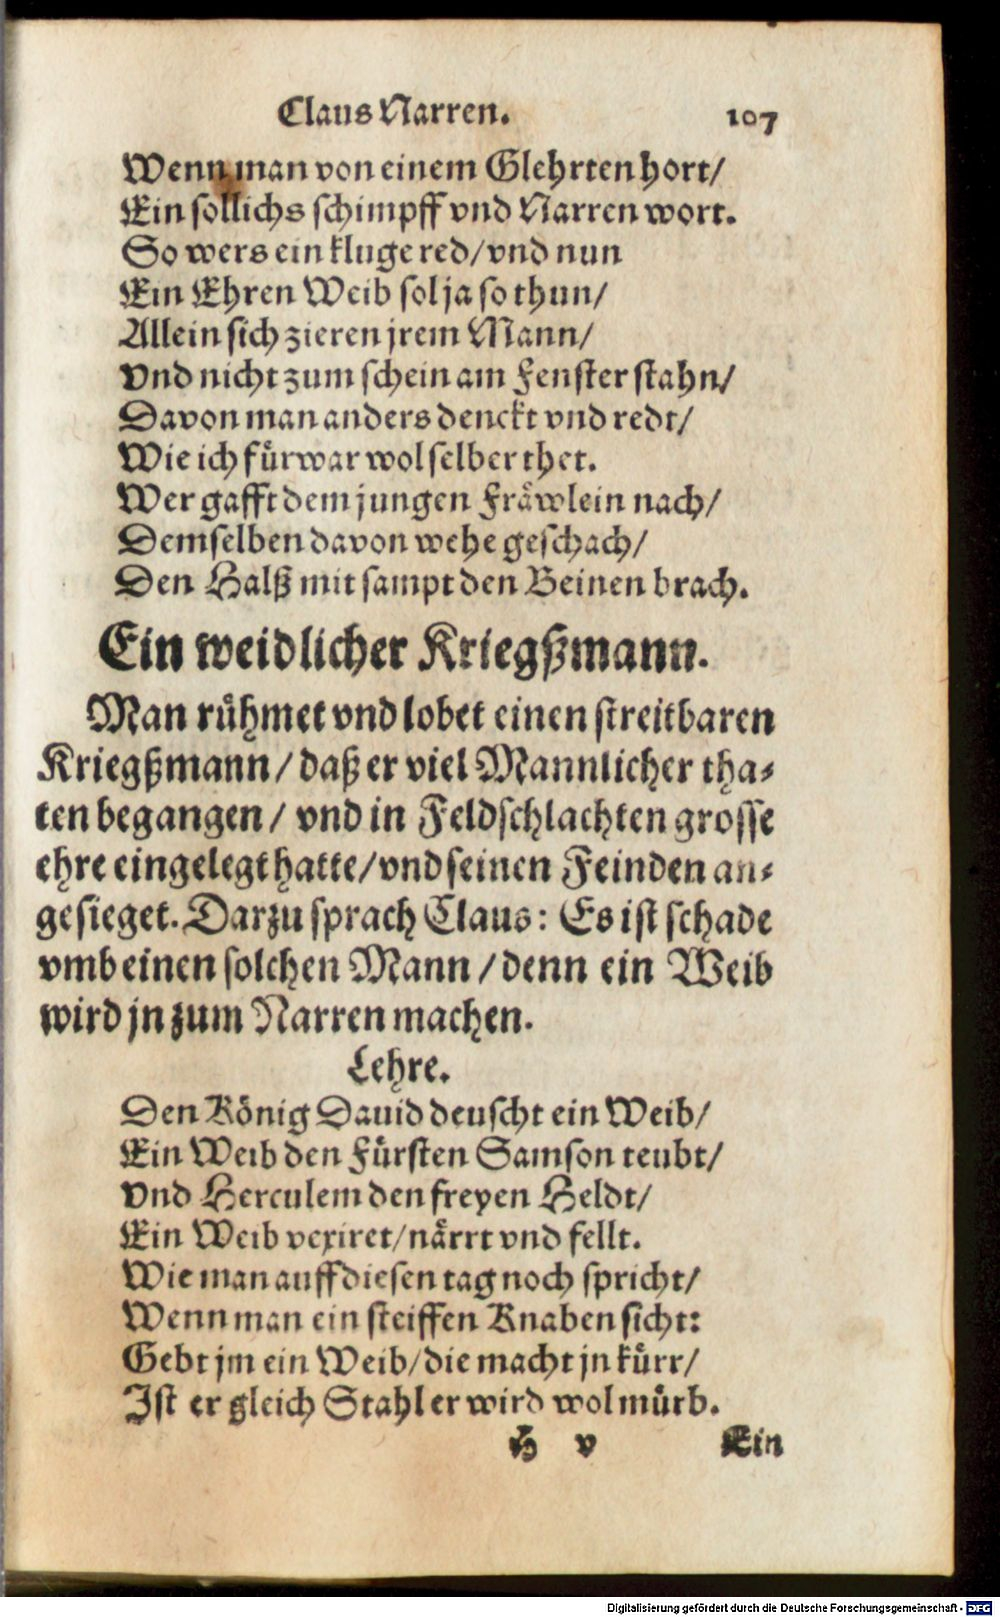 Claus Narren. 107
Wenn man von einem Glehrten hort/
Ein sollichs schimpff vnd Narren wort.
So wers ein kluge red/vnd nun
Ein Ehren Weib sol ja so thun/
Allein sich zieren jrem Mann/
Vnd nicht zum schein am Fenster stahn/
Davon man anders denckt vnd redt/
Wie ich fürwar wol selber thet.
Wer gafft dem jungen Fräwlein nach/
Demselben davon wehe geschach/
Den Halß mit sampt den Beinen brach.
Ein weidlicher Kriegßmann.
Man rühmet vnd lobet einen streitbaren
Kriegßmann/daß er viel Mannlicher tha-
ten begangen/ vnd in Feldschlachten grosse
ehre eingelegt hatte/vnd seinen Feinden an-
gesieget. Darzu sprach Claus: Es ist schade
vmb einen solchen Mann/denn ein Weib
wird jn zum Narren machen.
Lehre.
Den König Dauid deuscht ein Weib/
Ein Weib den Fürsten Samson teubt/
Vnd Herculem den freyen Heldt/
Ein Weib vexiret/närrt vnd fellt.
Wie man auff diesen tag noch spricht/
Wenn man ein steiffen Knaben sicht:
Gebt jm ein Weib/die macht jn kürr/
Ist er gleich Stahl er wird wol mürb.
H v Ein
Digitalisierung gefördert durch die Deutsche Forschungsgemeinschaft - DFG